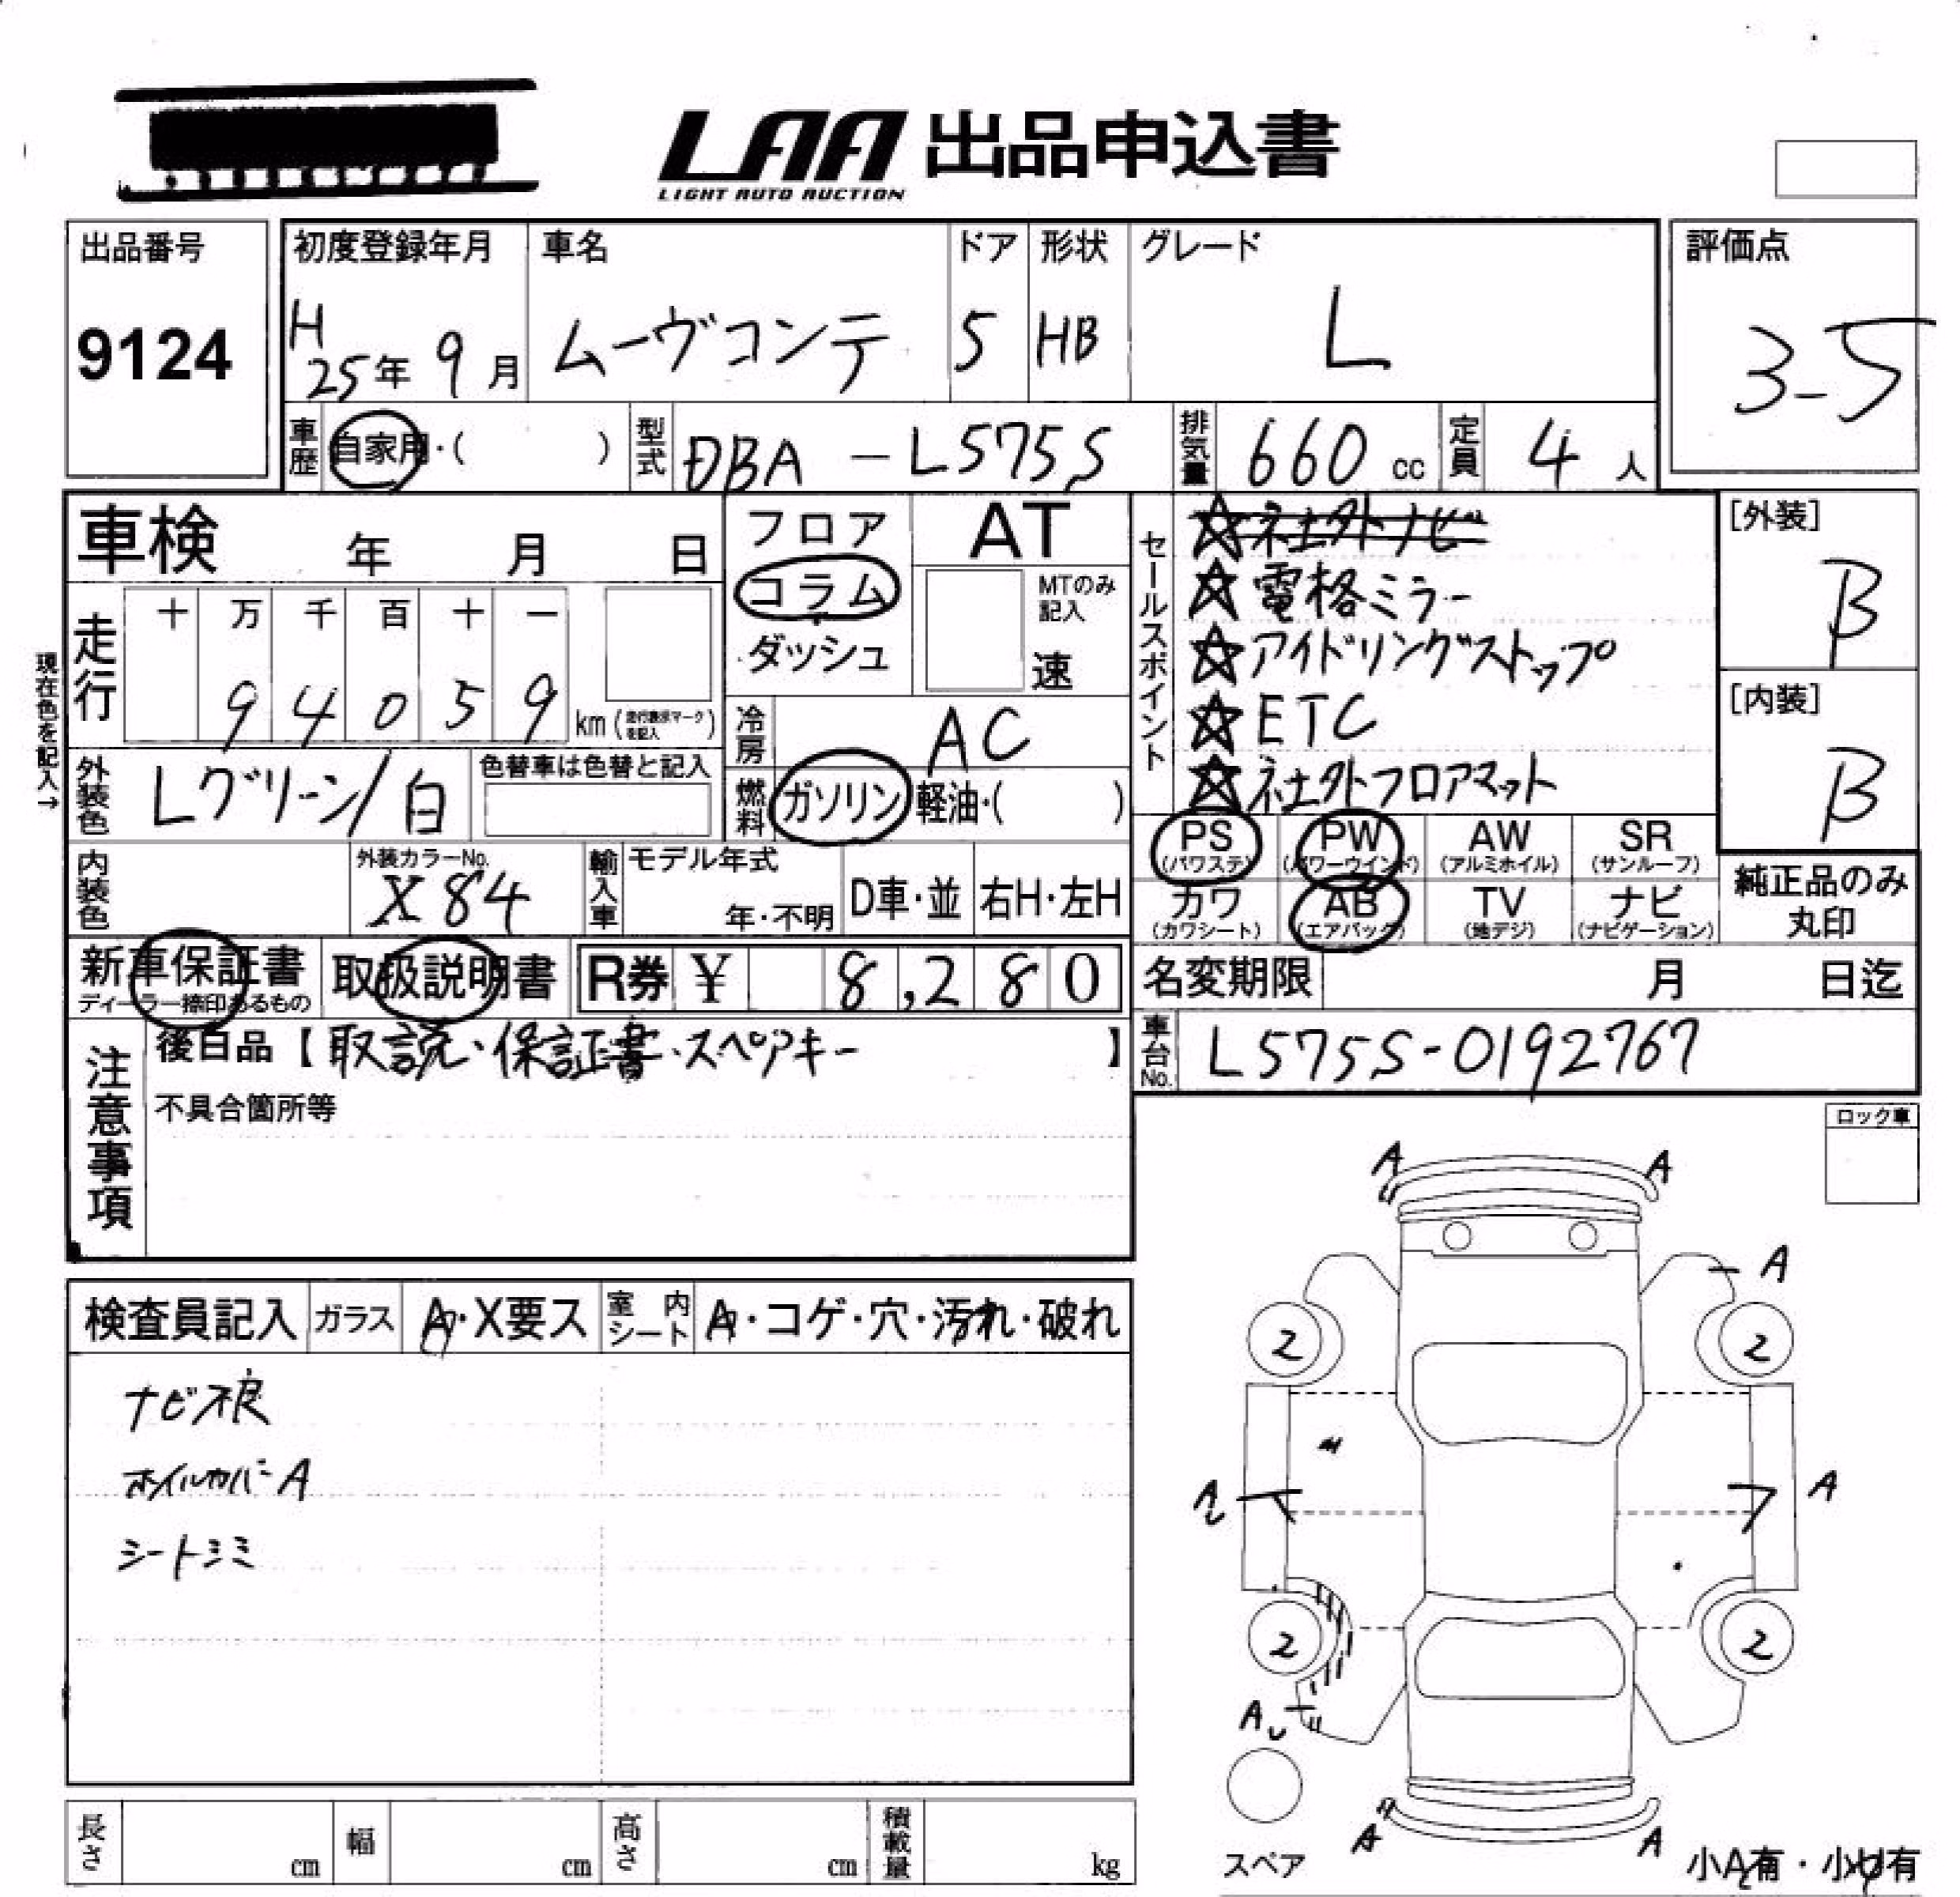 LAA 出品申込書
LIGHT AUTO AUCTION
出品番号
9124
初度登録年月
H25年 9月
車名
ムーヴコンテ
ドア
5
形状
HB
グレード
L
評価点
3-5
車歴
自家用・( )
型式
DBA-L575S
排気量
660 cc
定員
4 人
車検 年 月 日
走行
十 万 千 百 十 一
9 4 0 5 9 km (走行表示マークを記入)
現在色を記入→
外装色
Lグリーン/白
色替車は色替と記入
内装色
外装カラーNo.
X84
フロア
コラム
ダッシュ
AT
MTのみ記入
速
冷房
AC
燃料
ガソリン 軽油・( )
輸入車
モデル年式
年・不明
D車・並
右H・左H
セールスポイント
☆社外ナビ
☆電格ミラー
☆アイドリングストップ
☆ETC
☆社外フロアマット
[外装]
B
[内装]
B
PS (パワステ)
PW (パワーウインド)
AW (アルミホイル)
SR (サンルーフ)
カワ (カワシート)
AB (エアバック)
TV (地デジ)
ナビ (ナビゲーション)
純正品のみ丸印
新車保証書
ディーラー捺印あるもの
取扱説明書
R券 ¥ 8,280
名変期限 月 日迄
車台No.
L575S-0192767
注意事項
後日品【取説・保証書・スペアキー】
不具合箇所等
ロック車
検査員記入
ガラス
A・X要ス
室内シート
A・コゲ・穴・汚れ・破れ
ナビ不良
ホイルカバーA
シートシミ
A A
A
2 2
A A
2 2
A
A A
スペア
小A有・小U有
長さ cm
幅 cm
高さ cm
積載量 kg